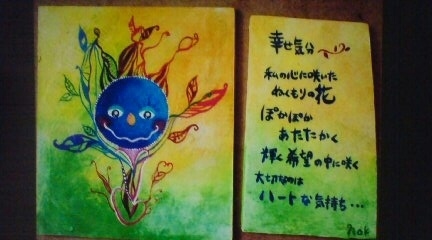 幸せ気分
私の心に咲いた
ぬくもりの花
ぽかぽか
あたたかく
輝く希望の中に咲く
大切なのは
ハートな気持ち…